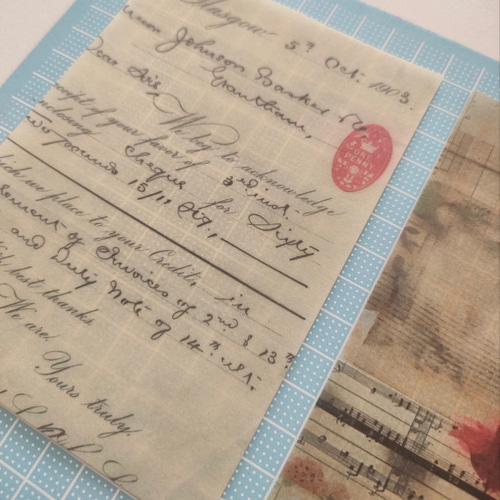 Glasgow 5th Oct. 1903.
Johnson Barker
Grantham,
Dear Sir
We beg to acknowledge
receipt of your favor of 3rd inst.
enclosing Cheque for Sixty
two pounds 15/11 Stg.,
which we place to your Credit, in
Settlement of Invoices of 2nd & 13th
and Duty Note of 14th ult.
With best thanks
We are,
Yours truly,
ONE
PENNY